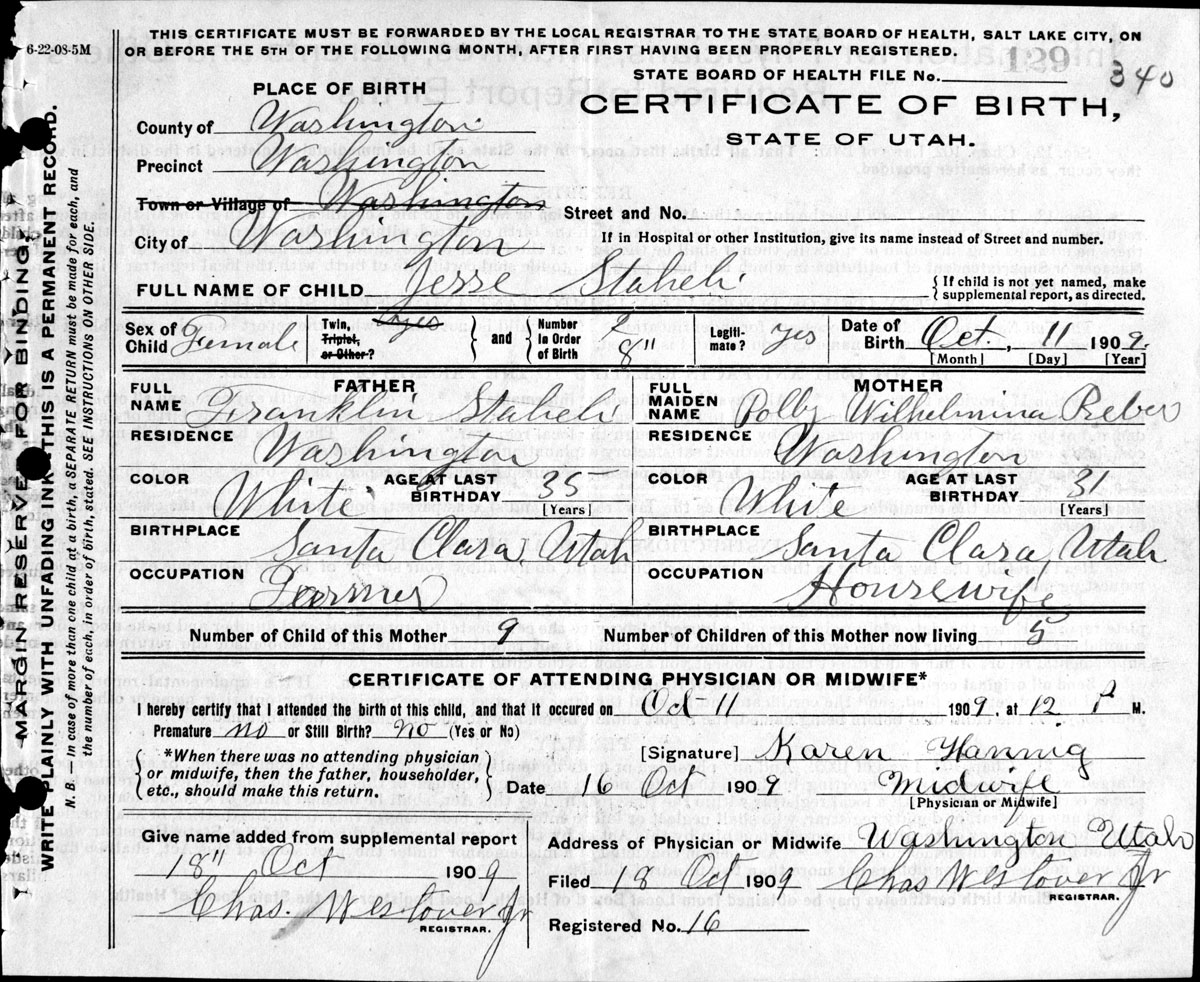 6-22-08-5M
THIS CERTIFICATE MUST BE FORWARDED BY THE LOCAL REGISTRAR TO THE STATE BOARD OF HEALTH, SALT LAKE CITY, ON
OR BEFORE THE 5TH OF THE FOLLOWING MONTH, AFTER FIRST HAVING BEEN PROPERLY REGISTERED.
STATE BOARD OF HEALTH FILE No. 129 340
PLACE OF BIRTH
CERTIFICATE OF BIRTH,
STATE OF UTAH.
County of Washington
Precinct Washington
Town or Village of Washington
Street and No.
City of Washington
If in Hospital or other Institution, give its name instead of Street and number.
FULL NAME OF CHILD Jesse Staheli
{ If child is not yet named, make
supplemental report, as directed.
Sex of Child Female
Twin, Triplet, or Other?
and
Number In Order of Birth 8"
Legiti-mate? Yes
Date of Birth Oct. 11 1909.
[Month] [Day] [Year]
FATHER
FULL NAME Franklin Staheli
RESIDENCE Washington
COLOR White AGE AT LAST BIRTHDAY 35
[Years]
BIRTHPLACE Santa Clara Utah
OCCUPATION Farmer
MOTHER
FULL MAIDEN NAME Polly Wilhelmina Reber
RESIDENCE Washington
COLOR White AGE AT LAST BIRTHDAY 31
[Years]
BIRTHPLACE Santa Clara Utah
OCCUPATION Housewife
Number of Child of this Mother 9 Number of Children of this Mother now living 5
CERTIFICATE OF ATTENDING PHYSICIAN OR MIDWIFE*
I hereby certify that I attended the birth of this child, and that it occured on Oct 11 1909. at 12. P M.
Premature no or Still Birth? No (Yes or No)
*When there was no attending physician
or midwife, then the father, householder,
etc., should make this return.
[Signature] Karen Hannig
Date 16 Oct 1909 Midwife
[Physician or Midwife]
Give name added from supplemental report
18" Oct 1909
Chas. Westover Jr
REGISTRAR.
Address of Physician or Midwife Washington Utah
Filed 18 Oct 1909 Chas Westover Jr
REGISTRAR.
Registered No. 16
MARGIN RESERVED FOR BINDING.
WRITE PLAINLY WITH UNFADING INK—THIS IS A PERMANENT RECORD.
N. B.—In case of more than one child at a birth, a SEPARATE RETURN must be made for each, and
the number of each, in order of birth, stated. SEE INSTRUCTIONS ON OTHER SIDE.